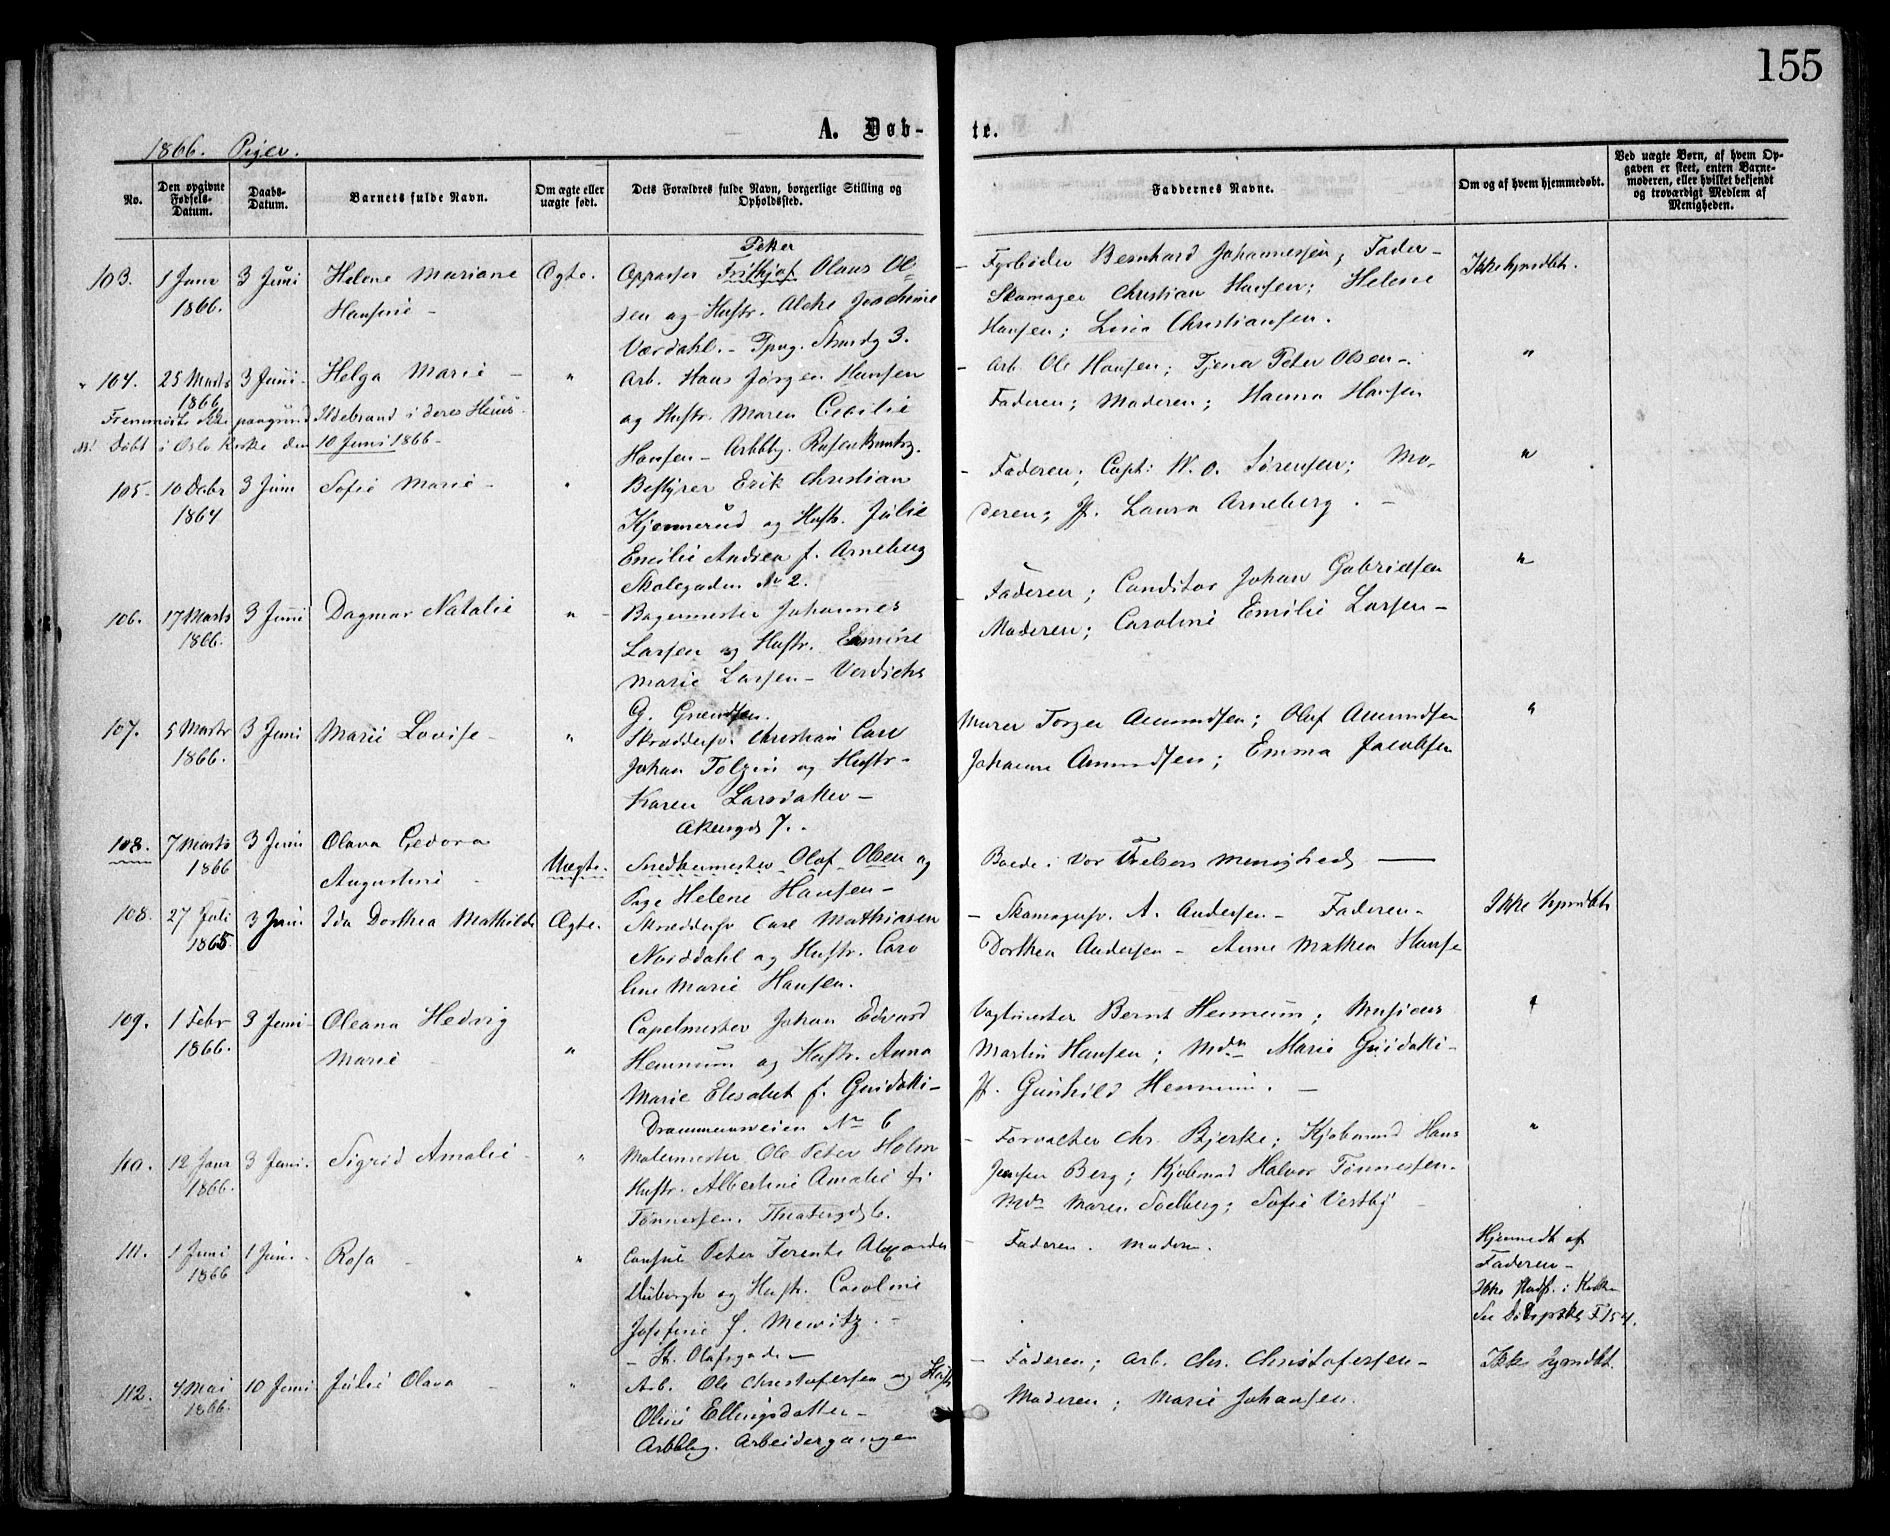 155
A. Døb-
te.
1866. Piger.
No.
Den opgivne Fødsels-Datum.
Daabs-Datum.
Barnets fulde Navn.
Om ægte eller uægte født.
Dets Forældres fulde Navn, borgerlige Stilling og Opholdssted.
Faddernes Navne.
Om og af hvem hjemmedøbt.
Ved uægte Børn, af hvem Op-
gaven er skeet, enten Barne-
moderen, eller hvilket bekjendt
og troværdigt Medlem af
Menigheden.
103. 1 Janr 1866. 3 Juni Helene Mariane Hansine - Ægte.
Peter
Oppasser Frithjof Olaus Ol-
sen og Hustr.
Værdahl. -
- Fyrbøder Bernhard Johannessen; Fader -
Skomager Christian Hansen; Helene
Hansen; Lina Christiansen.
104. 25 Marts 1866 3 Juni - Helga Marie - "
Fremmødte ikke paagrund Ildebrand i deres Huus.
Døbt i Oslo Kirke den 10 Juni 1866 -
Arb. Hans Jørgen Hansen
og Hustr. Maren Cecilie
Hansen -
- Arb. Ole Hansen; Tjena Peter Olsen -
Faderen; Moderen; Hanna Hansen
"
105. 10 Decbr 1864 3 Juni Sofie Marie - "
Bestyrer Erik Christian
Kjennerud og Hustr. Julie
Emilie Andrea f. Arneberg
Skolegaden No 2.
- Faderen; Capt: W. O. Sørensen; Mo-
deren; Jf. Laura Arneberg. -
"
106. 17 Marts 1866. 3 Juni Dagmar Natalie " -
Bagermester Johannes
Larsen og Hustr.
Marie Larsen -
- Faderen; Conditor Johan Gabrielsen
Moderen; Caroline Emilie Larsen -
"
107. 5 Marts 1866. 3 Juni Marie Lovise - "
Skræddersv. Christian Carl
Johan Tolzin og Hustr -
Karen Larsdatter -
Akersgd 7. -
Murer Torger Amundsen; Oluf Amundsen
Johanne Amundsen; Emma Jacobsen
"
108. 7 Marts 1866 3 Juni Olava Gedora Augustine - Uægte.
Snedkermester Olaf Olsen og
Pige Helene Hansen -
Boede i Vor Frelsers Menighed
108. 27 Juli 1865 3 Juni Ida Dorthea Mathilde Ægte.
Skræddersv Carl Mathiasen
Norddahl og Hustr. Caro
line Marie Hansen.
- Skomagersv. A. Andersen - Faderen -
Dorthea Andersen - Anne Mathea Hanse
109. 1 Febr 1866. 3 Juni - Oleana Hedvig Marie - "
Capelmester Johan Edvard
Hennum og Hustr. Anna
Marie Elisabet f. Guidotti -
Drammensveien No 6
Vagtmester Bernt Hennum; Musicus
Martin Hansen; Mdm Marie Guidotti -
Jf. Gunhild Hennum. -
110. 12 Janr 1866. 3 Juni. Sigrid Amalie - "
Malermester Ole Peter Holm
Hustr. Albertine Amalie f.
Tønnessen. Theatergd 6.
- Forvalter Chr. Bjerke; Kjøbmand Hans
Jensen Berg; Kjøbmand Halvor Tønnessen.
Mdm Maren Soelberg; Sofie Vestby
"
111. 1 Juni 1866 1 Juni. Rosa - "
Consul Peter Alexander
og Hustr. Caroline
Josefine f. Mewitz. -
- St. Olafsgade -
- Faderen. Moderen.
Hjemmedt af
Faderen -
112. 4 Mai 1866. 10 Juni Julie Olava - "
Arb. Ole Christofersen og Hustr
Oline Ellingsdatter -
Arbeidergangen
- Faderen; Arb. Chr. Christofersen -
Moderen; Marie Johansen.